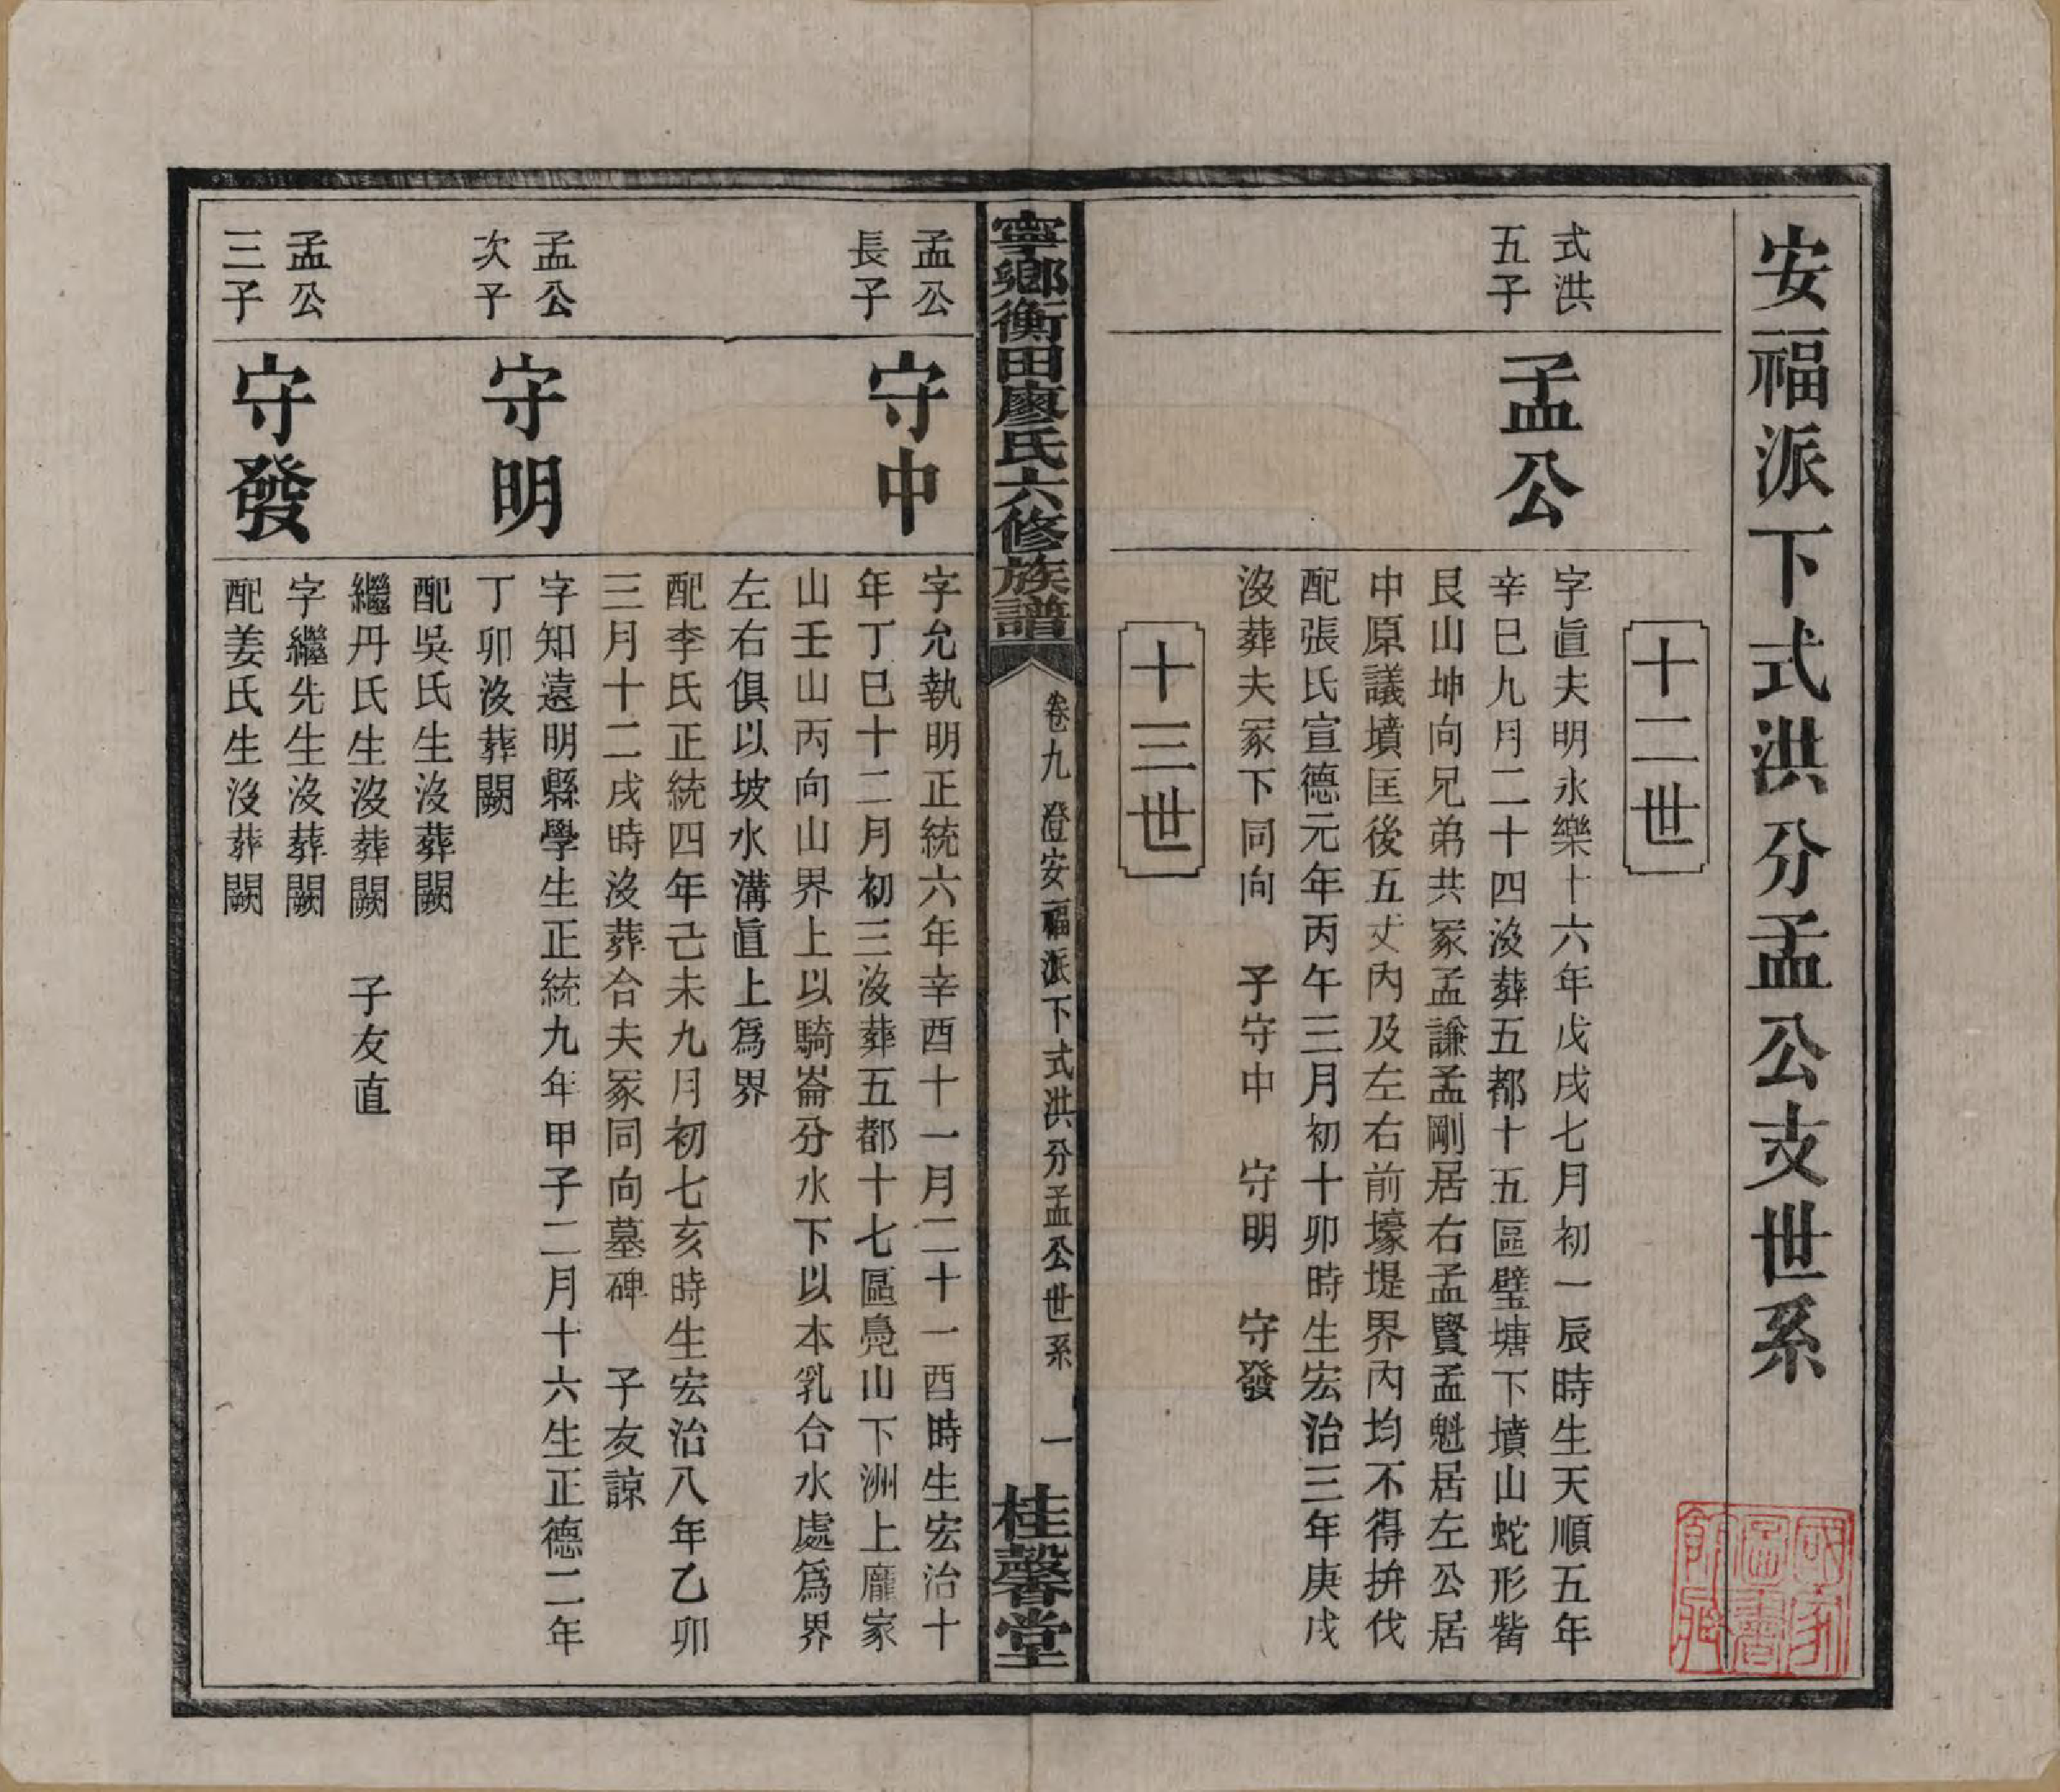 安福派下式洪分孟公支世系
十二世
式洪
五子
孟公
字眞夫明永樂十六年戊戌七月初一辰時生天順五年
辛巳九月二十四沒葬五都十五區璧塘下墳山蛇形觜
艮山坤向兄弟共冢孟謙孟剛居右孟賢孟魁居左公居
中原議墳匡後五丈內及左右前壕堤界內均不得拚伐
配張氏宣德元年丙午三月初十卯時生宏治三年庚戌
沒葬夫冢下同向　子守中　守明　守發
十三世
寧鄉衡田廖氏六修族譜
卷九　澄安福派下式洪分孟公世系　一
桂馨堂
孟公
長子
守中
字允執明正統六年辛酉十一月二十一酉時生宏治十
年丁巳十二月初三沒葬五都十七區鳧山下洲上龐家
山壬山丙向山界上以騎崙分水下以本乳合水處爲界
左右俱以坡水溝直上爲界
配李氏正統四年己未九月初七亥時生宏治八年乙卯
三月十二戌時沒葬合夫冢同向墓碑　子友諒
孟公
次子
守明
字知遠明縣學生正統九年甲子二月十六生正德二年
丁卯沒葬闕
配吳氏生沒葬闕
繼丹氏生沒葬闕　子友直
孟公
三子
守發
字繼先生沒葬闕
配姜氏生沒葬闕
國家
圖書
館藏